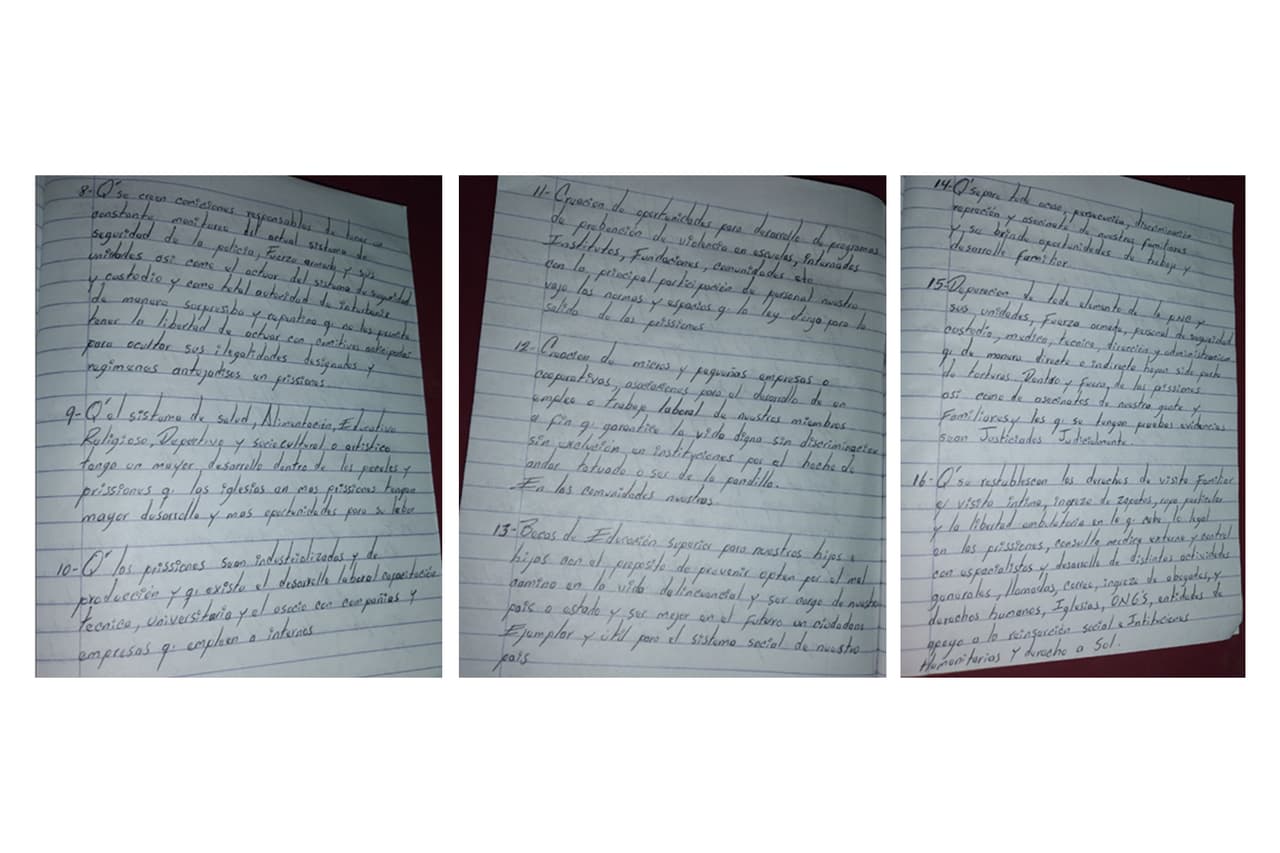 8- Q' se creen coniciones responsables de tener un
constante monitoreo del actual sistema de
seguridad de la policia, Fuerza armada y sus
unidades asi como el actuar del sistema de seguridad
y custodio y como total autoridad de
de manera sorpresiba y repentina q. no les permita
tener la libertad de actuar con comitivas anticipadas
para ocultar sus ilegalidades designatos y
regimenes antojadisos en prissiones
9- Q' el sistema de salud, Alimentación, Educativo
Religioso, Deportivo y sociocultural o artistico
tenga un mayor desarrollo dentro de los penales y
prissiones q. las iglesias en mas prissiones tengan
mayor desarrollo y mas oportunidades para su labor
10- Q' las prissiones sean industrializadas y de
producción y q. exista el desarrollo laboral capacitación
Tecnica, universitaria y el asocio con compañias y
empresas q. empleen a internos
11- Creacion de oportunidades para desarrollo de programas
de prebención de violencia en escuelas, internados
Institutos, Fundaciones, comunidades etc
con la principal participación de personal nuestro
vajo las normas y espacios q. la ley dirga para la
salida de las prissiones
12- Creacion de micros y pequeñas empresas o
cooperativas, asociasiones para el desarollo de un
empleo o trabajo laboral de nuestros miembros
a fin q. garantice la vida digna sin discriminacion
sin exclución en instituciones por el hecho de
andar tatuado o ser de la pandilla.
En las comunidades nuestras
13- Becas de Educación superior para nuestros hijos e
hijas con el proposito de prevenir opten por el mal
camino en la vida delincuencial y ser carga de nuestro
pais o estado y ser mejor en el futuro un ciudadano
Ejemplar y útil para el sistema social de nuestro
pais
14- Q' se pare todo acoso, persecución, discriminacion
represión y asecinato de nuestros familiares
y se brinde oportunidades de trabajo y
desarrollo familiar
15- Depuracion de todo elemento de la PNC y
sus unidades, Fuerza armada, personal de seguridad
custodio, medico, tecnico, dirección y administracion
q. de manera directa e indirecta hayan sido parte
de torturas Dentro y Fuera de las prissiones
asi como de asecinatos de nuestra gente y
Familiares y los q. se tengan pruebas evidencias
sean Justiciados Judicialmente
16- Q' se restablescan los derechos de visita Familiar
e/ visita intima, ingreso de zapatos, ropa particular
y la libertad ambulatoria en lo q. cabe lo legal
en las prissiones, consulta medica externa y control
con especialistas y desarrollo de distintas actividades
generales, llamadas, correo, ingreso de abogados, y
derechos humanos, Iglesias, ONG'S, entidades de
apoyo a la reinserción social e Intituciones
Humanitarias y derecho a Sol.